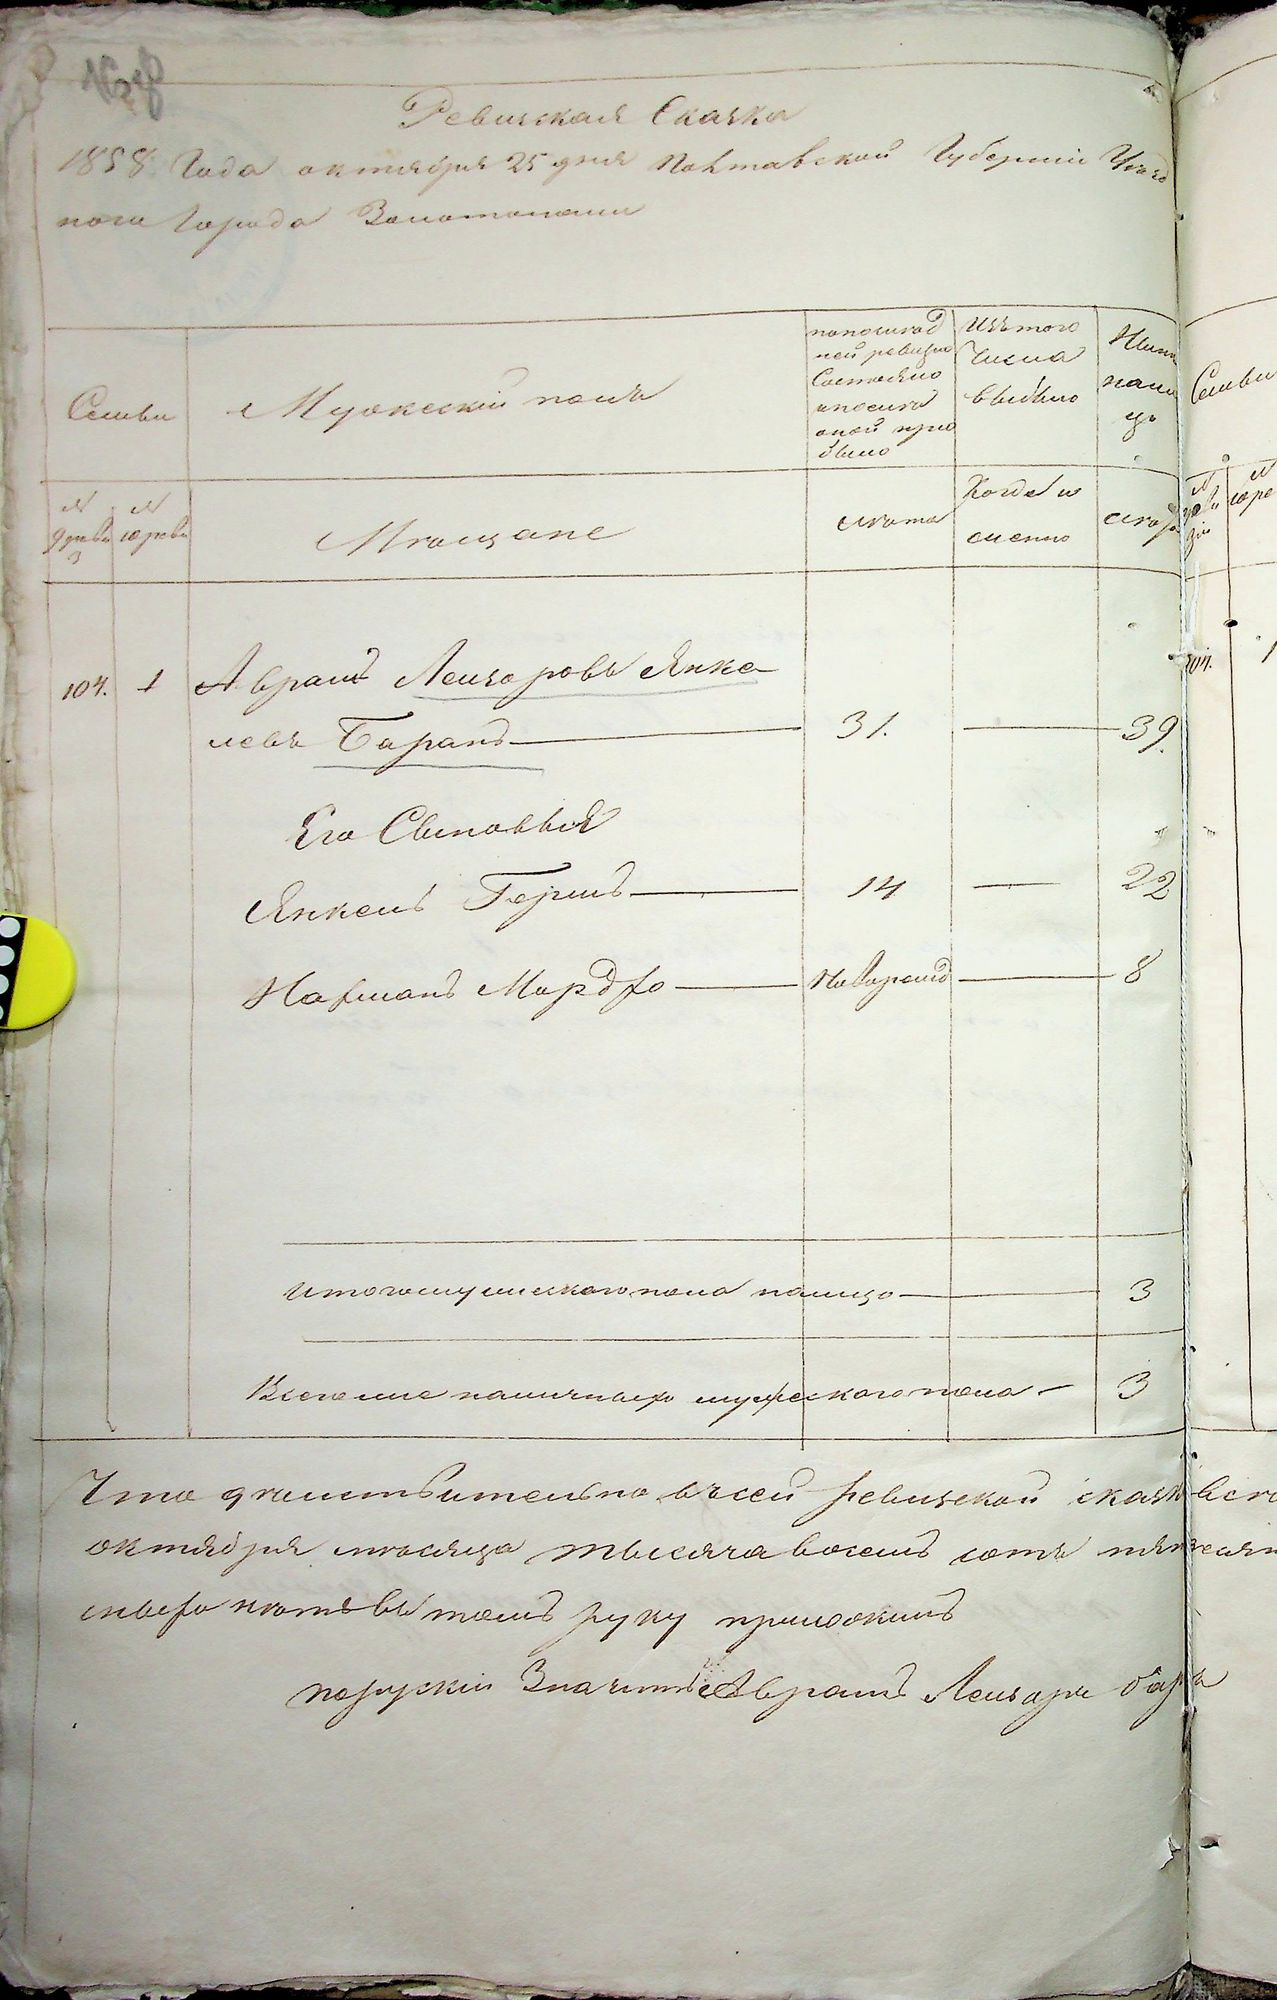 Ревизская Сказка
1858 Года октября 25 дня Полтавской Губернии Уезд
ного Города Золотоноши
Семьи
Мужеский полъ
по послед
ней ревизіи
Состояло
и после
оной при
было
Изъ того
числа
выбыло
Ныне
нали
цо
Семьи
№
ревиз
№
скрев
Мещане
лета
Когда и
именно
лета
104. 1 Аврамъ Лейзоровъ Янке
левъ Баранъ 31. 39.
Его Сыновья
Янкель Гершъ 14 22
Нахманъ Мордхо Новорожд 8
Итого мужескаго пола налицо 3
Всего же наличныхъ мужескаго пола 3
Что действительно въ сей ревизской сказке всего
октября месяца тысяча восемь сотъ
руку приложилъ
по руски Значитъ Аврамъ Лейзоръ